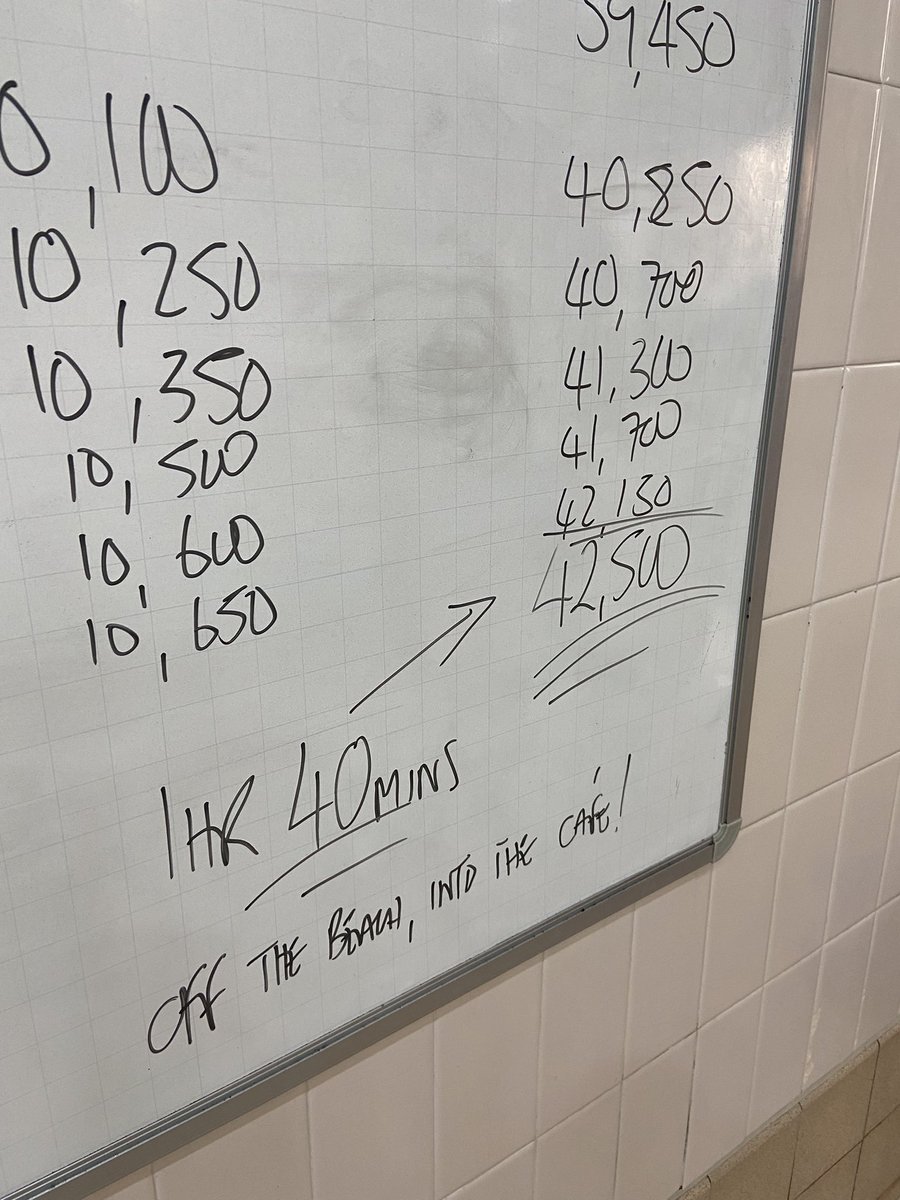 39,450
0,100
40,850
10,250
40,700
10,350
41,300
10,500
41,700
10,600
42,150
10,650
42,500
1HR 40MINS
OFF THE BEACH, INTO THE CAFÉ!